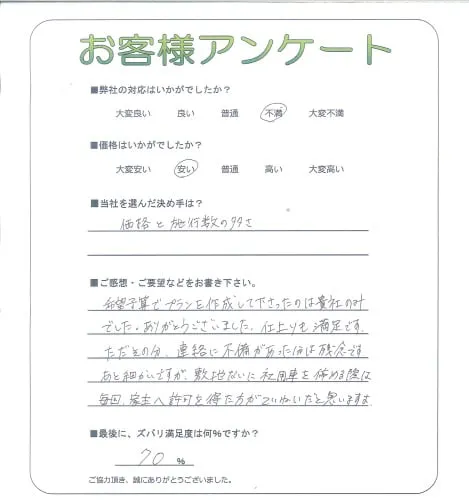 お客様アンケート
■弊社の対応はいかがでしたか？
大変良い 良い 普通 不満 大変不満
■価格はいかがでしたか？
大変安い 安い 普通 高い 大変高い
■当社を選んだ決め手は？
価格と施行数の多さ
■ご感想・ご要望などをお書き下さい。
希望予算でプランを作成して下さったのは貴社のみ
でした。ありがとうございました。仕上りも満足です
ただその分、連絡に不備があった分は残念です
あと細かいですが、敷地ないに社用車を停める際は
毎回、家主へ許可を得た方がていねいだと思いますよ
■最後に、ズバリ満足度は何%ですか？
70 %
ご協力頂き、誠にありがとうございました。